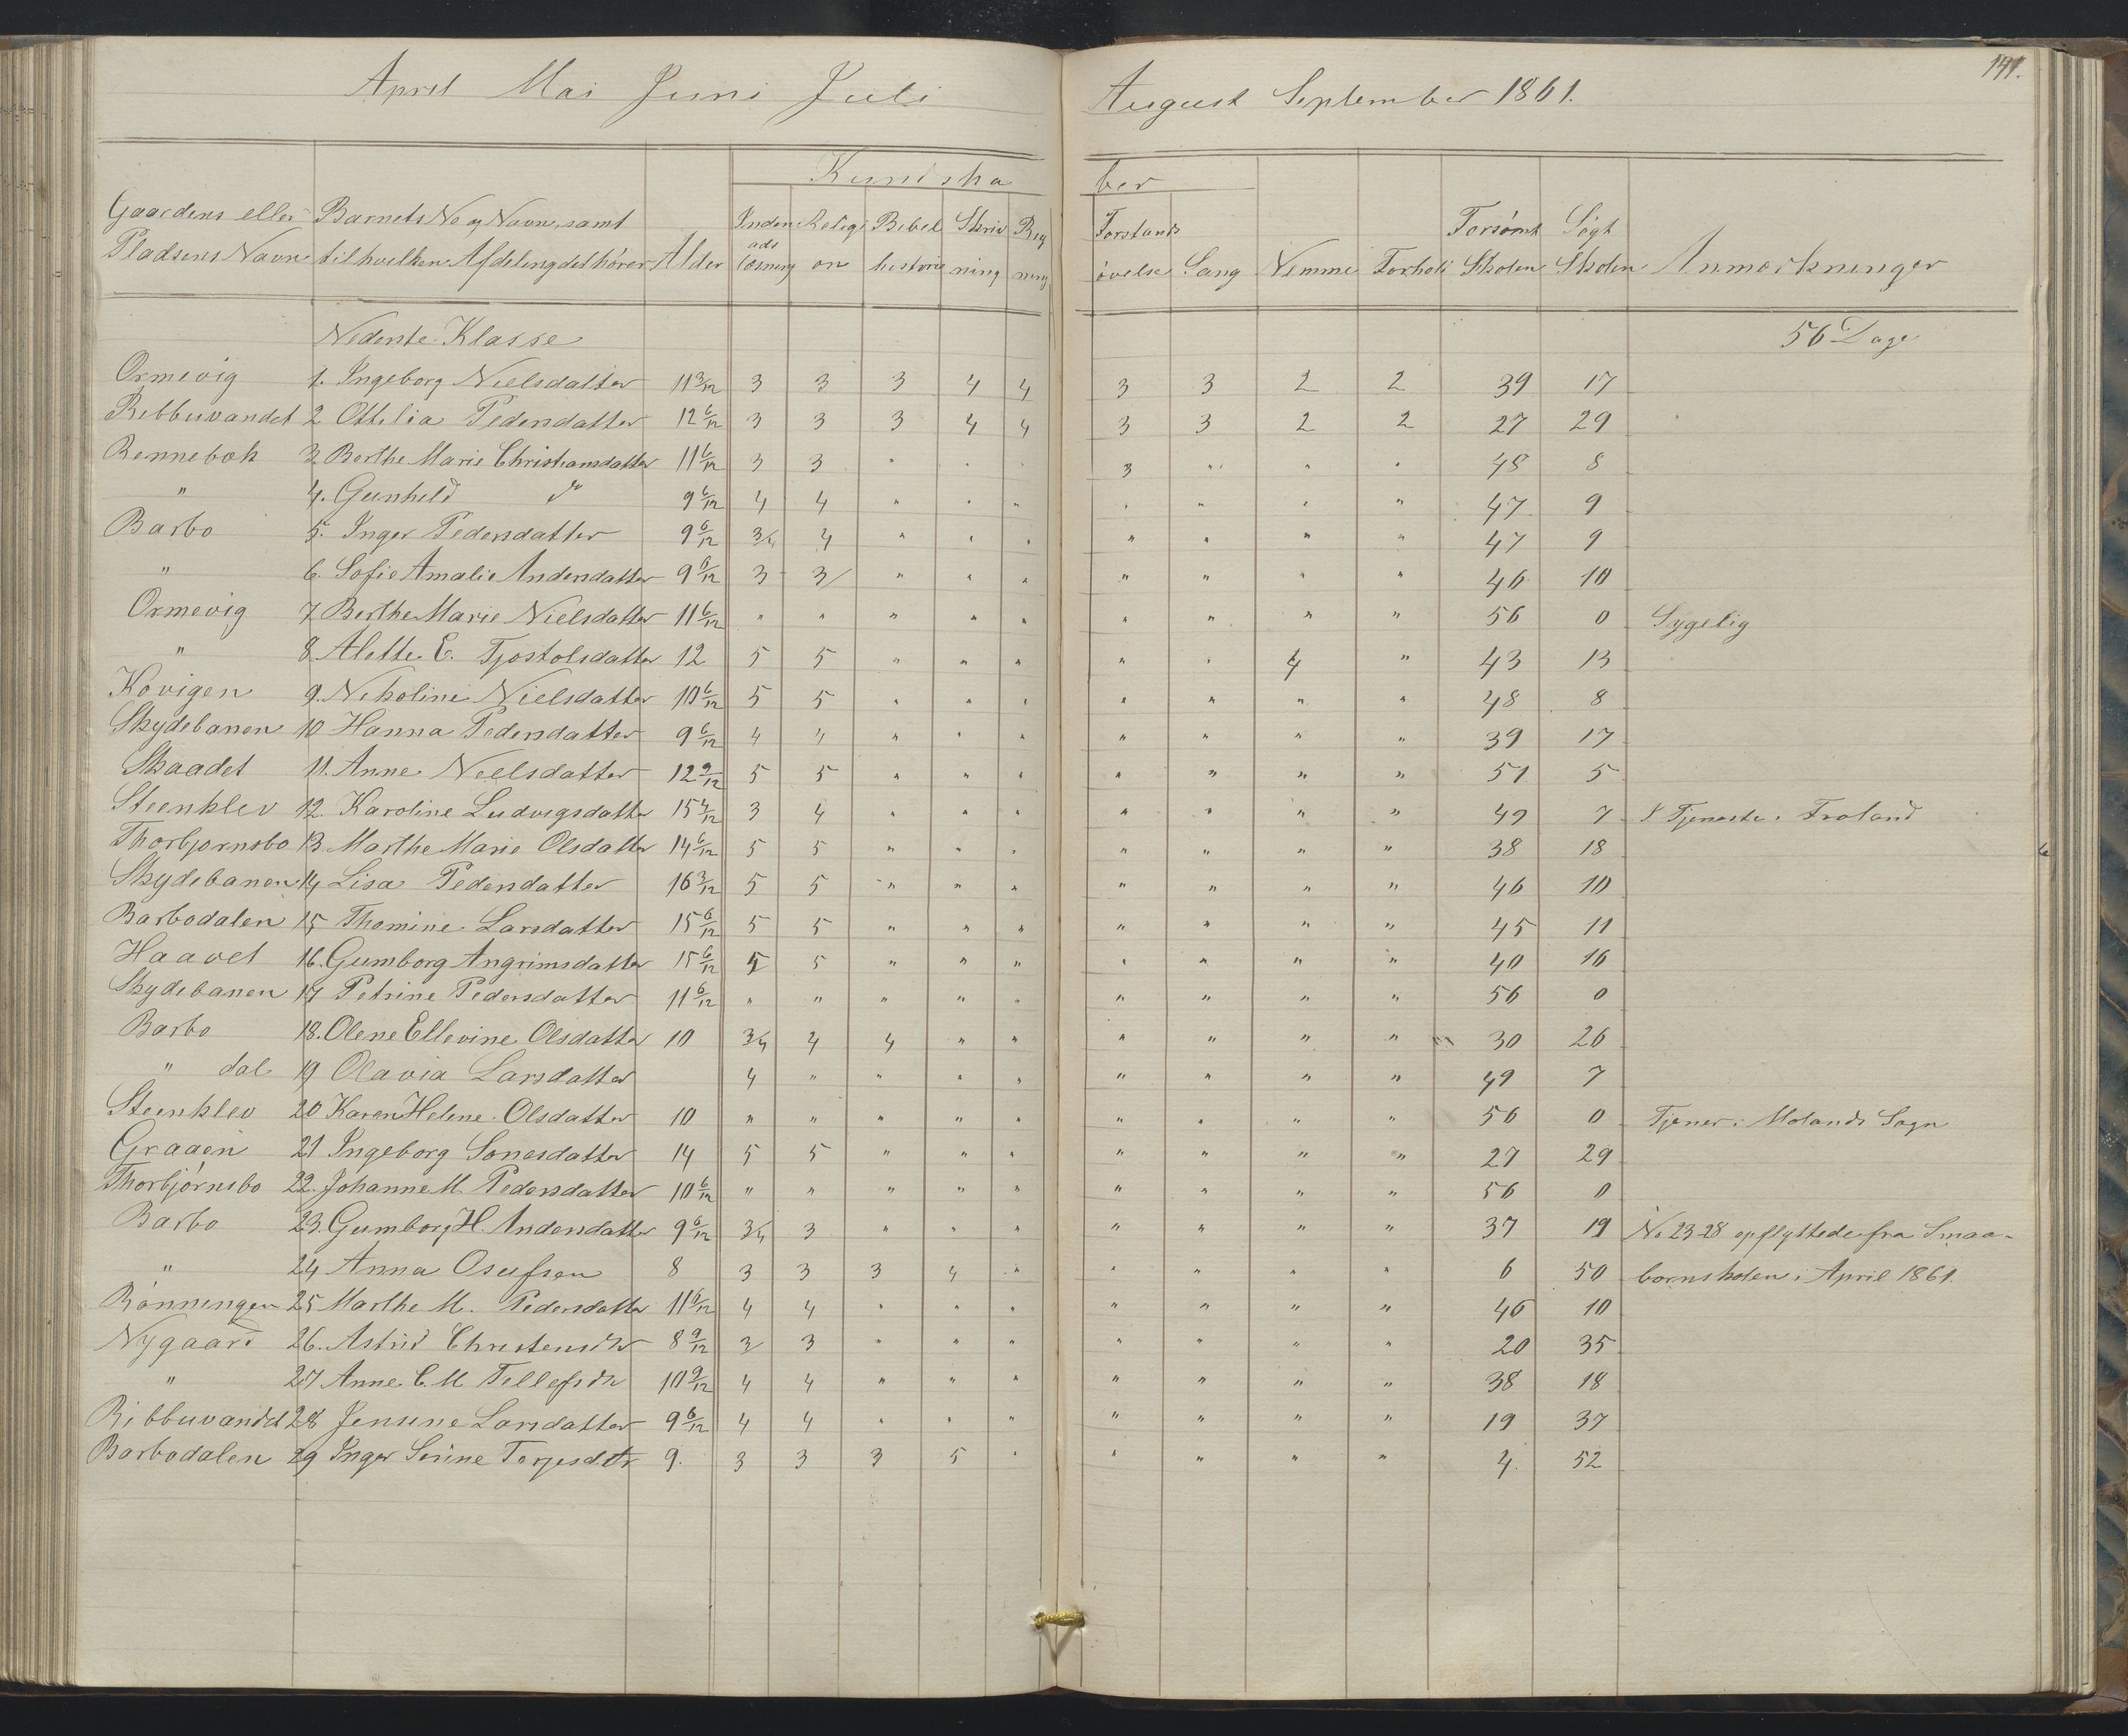 April Mai Juni Juli August September 1861.
141.
Kundska ber
Gaardens eller Barnets No og Navn, samt Inden Religi Bibel Skriv Reg Forstands Forsømt Søgt
Pladsens Navn til hvilken Afdeling det hører Alder ads læsning on historie ning ning øvelse Sang Nemme Forhold Skolen Skolen Anmærkninger
Nederste Klasse 56 Dage
Ormevig 1. Ingeborg Nielsdatter 11 3/12 3 3 3 4 4 3 3 2 2 39 17
Ribbuvandet 2 Ottelia Pedersdatter 12 6/12 3 3 3 4 4 3 3 2 2 27 29
Rennebæk 3. Berthe Marie Christiansdatter 11 6/12 3 3 " " " 3 " " " 48 8
" 4. Gunhild dr 9 6/12 4 4 " " " " " " " 47 9
Barbo 5. Inger Pedersdatter 9 6/12 3/4 4 " " " " " " " 47 9
" 6. Sofie Amalie Andersdatter 9 6/12 3 3 " " " " " " " 46 10
Ormevig 7 Berthe Marie Nielsdatter 11 6/12 " " " " " " " " " 56 0 Sygelig
" 8 Alette E. Tjostolsdatter 12 5 5 " " " " " 4 " 43 13
Kovigen 9. Nikoline Nielsdatter 10 6/12 5 5 " " " " " " " 48 8
Skydebanen 10 Hanna Pedersdatter 9 6/12 4 4 " " " " " " " 39 17
Skaadet 11. Anne Neelsdatter 12 9/12 5 5 " " " " " " " 51 5
Steenklev 12. Karoline Ludvigsdatter 15 4/12 3 4 " " " " " " " 49 7 I Tjeneste i Froland
Thorbjørnsbo 13. Marthe Marie Olsdatter 14 6/12 5 5 " " " " " " " 38 18
Skydebanen 14 Lisa Pedersdatter 16 3/12 5 5 " " " " " " " 46 10
Barbodalen 15 Thomine Larsdatter 15 6/12 5 5 " " " " " " " 45 11
Haavet 16. Gumborg Angrimsdatter 15 6/12 5 5 " " " " " " " 40 16
Skydebanen 17 Petrine Pedersdatter 11 6/12 " " " " " " " " " 56 0
Barbo 18. Olene Ellevine Olsdatter 10 3/4 4 4 " " " " " " 30 26
" dal 19 Olavia Larsdatter 4 " " " " " " " " 49 7
Steenklev 20 Karen Helene Olsdatter 10 " " " " " " " " " 56 0 Tjener i Molands Sogn
Graaen 21 Ingeborg Sonesdatter 14 5 5 " " " " " " " 27 29
Thorbjørnsbo 22. Johanne M. Pedersdatter 10 6/12 " " " " " " " " " 56 0
Barbo 23. Gumborg H. Andersdatter 9 6/12 3/4 3 " " " " " " " 37 19 No 23-28 opflyttede fra Smaa-
" 24 Anna Osufsen 8 3 3 3 4 " " " " " 6 50 børnskolen i April 1861.
Rønningen 25 Marthe M. Pedersdatter 11 6/12 4 4 " " " " " " " 46 10
Nygaard 26. Astrid Christensdr 8 9/12 3 3 " " " " " " " 20 35
" 27 Anne C. M Tellefsdr 10 9/12 4 4 " " " " " " " 38 18
Ribbuvandet 28 Jensine Larsdatter 9 6/12 4 4 " " " " " " " 19 37
Barbodalen 29 Inger Serine Torjesdtr 9. 3 3 3 5 " " " " " 4. 52